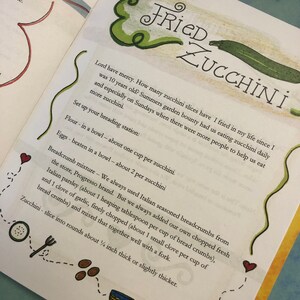 FRIED
ZUCCHINI
Lord have mercy. How many zucchini slices have I fried in my life since I
was 10 years old? Summers garden bounty had us eating zucchini daily
and especially on Sundays when there were more people to help us eat
more zucchini.
Set up your breading station:
Flour - in a bowl – about one cup per zucchini
Eggs – beaten in a bowl – about 2 per zucchini
Breadcrumb mixture – We always used Italian seasoned breadcrumbs from
the store, Progresso brand. But we always added our own chopped fresh
Italian parsley (about 1 heaping tablespoon per cup of bread crumbs),
and 1 clove of garlic, finely chopped (about 1 small clove per cup of
bread crumbs) and mixed that together well with a fork.
Zucchini – slice into rounds about ¼ inch thick or slightly thicker.